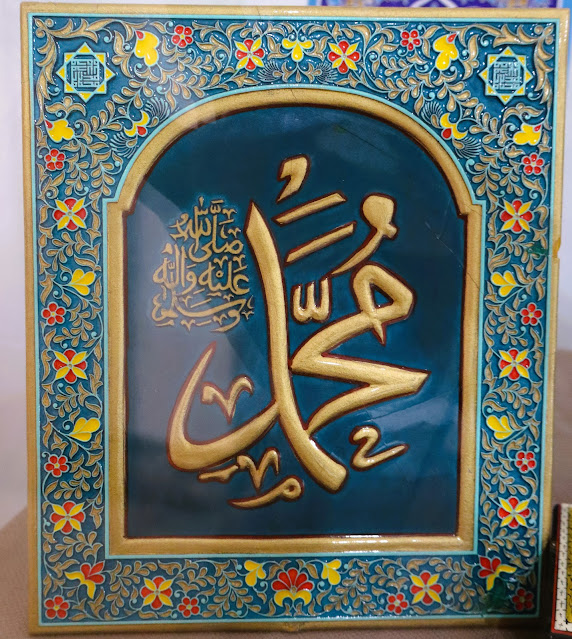 مُحَمَّد
صَلَّى اللَّه
عَلَيْهِ وَآلِه
وَسَلَّم